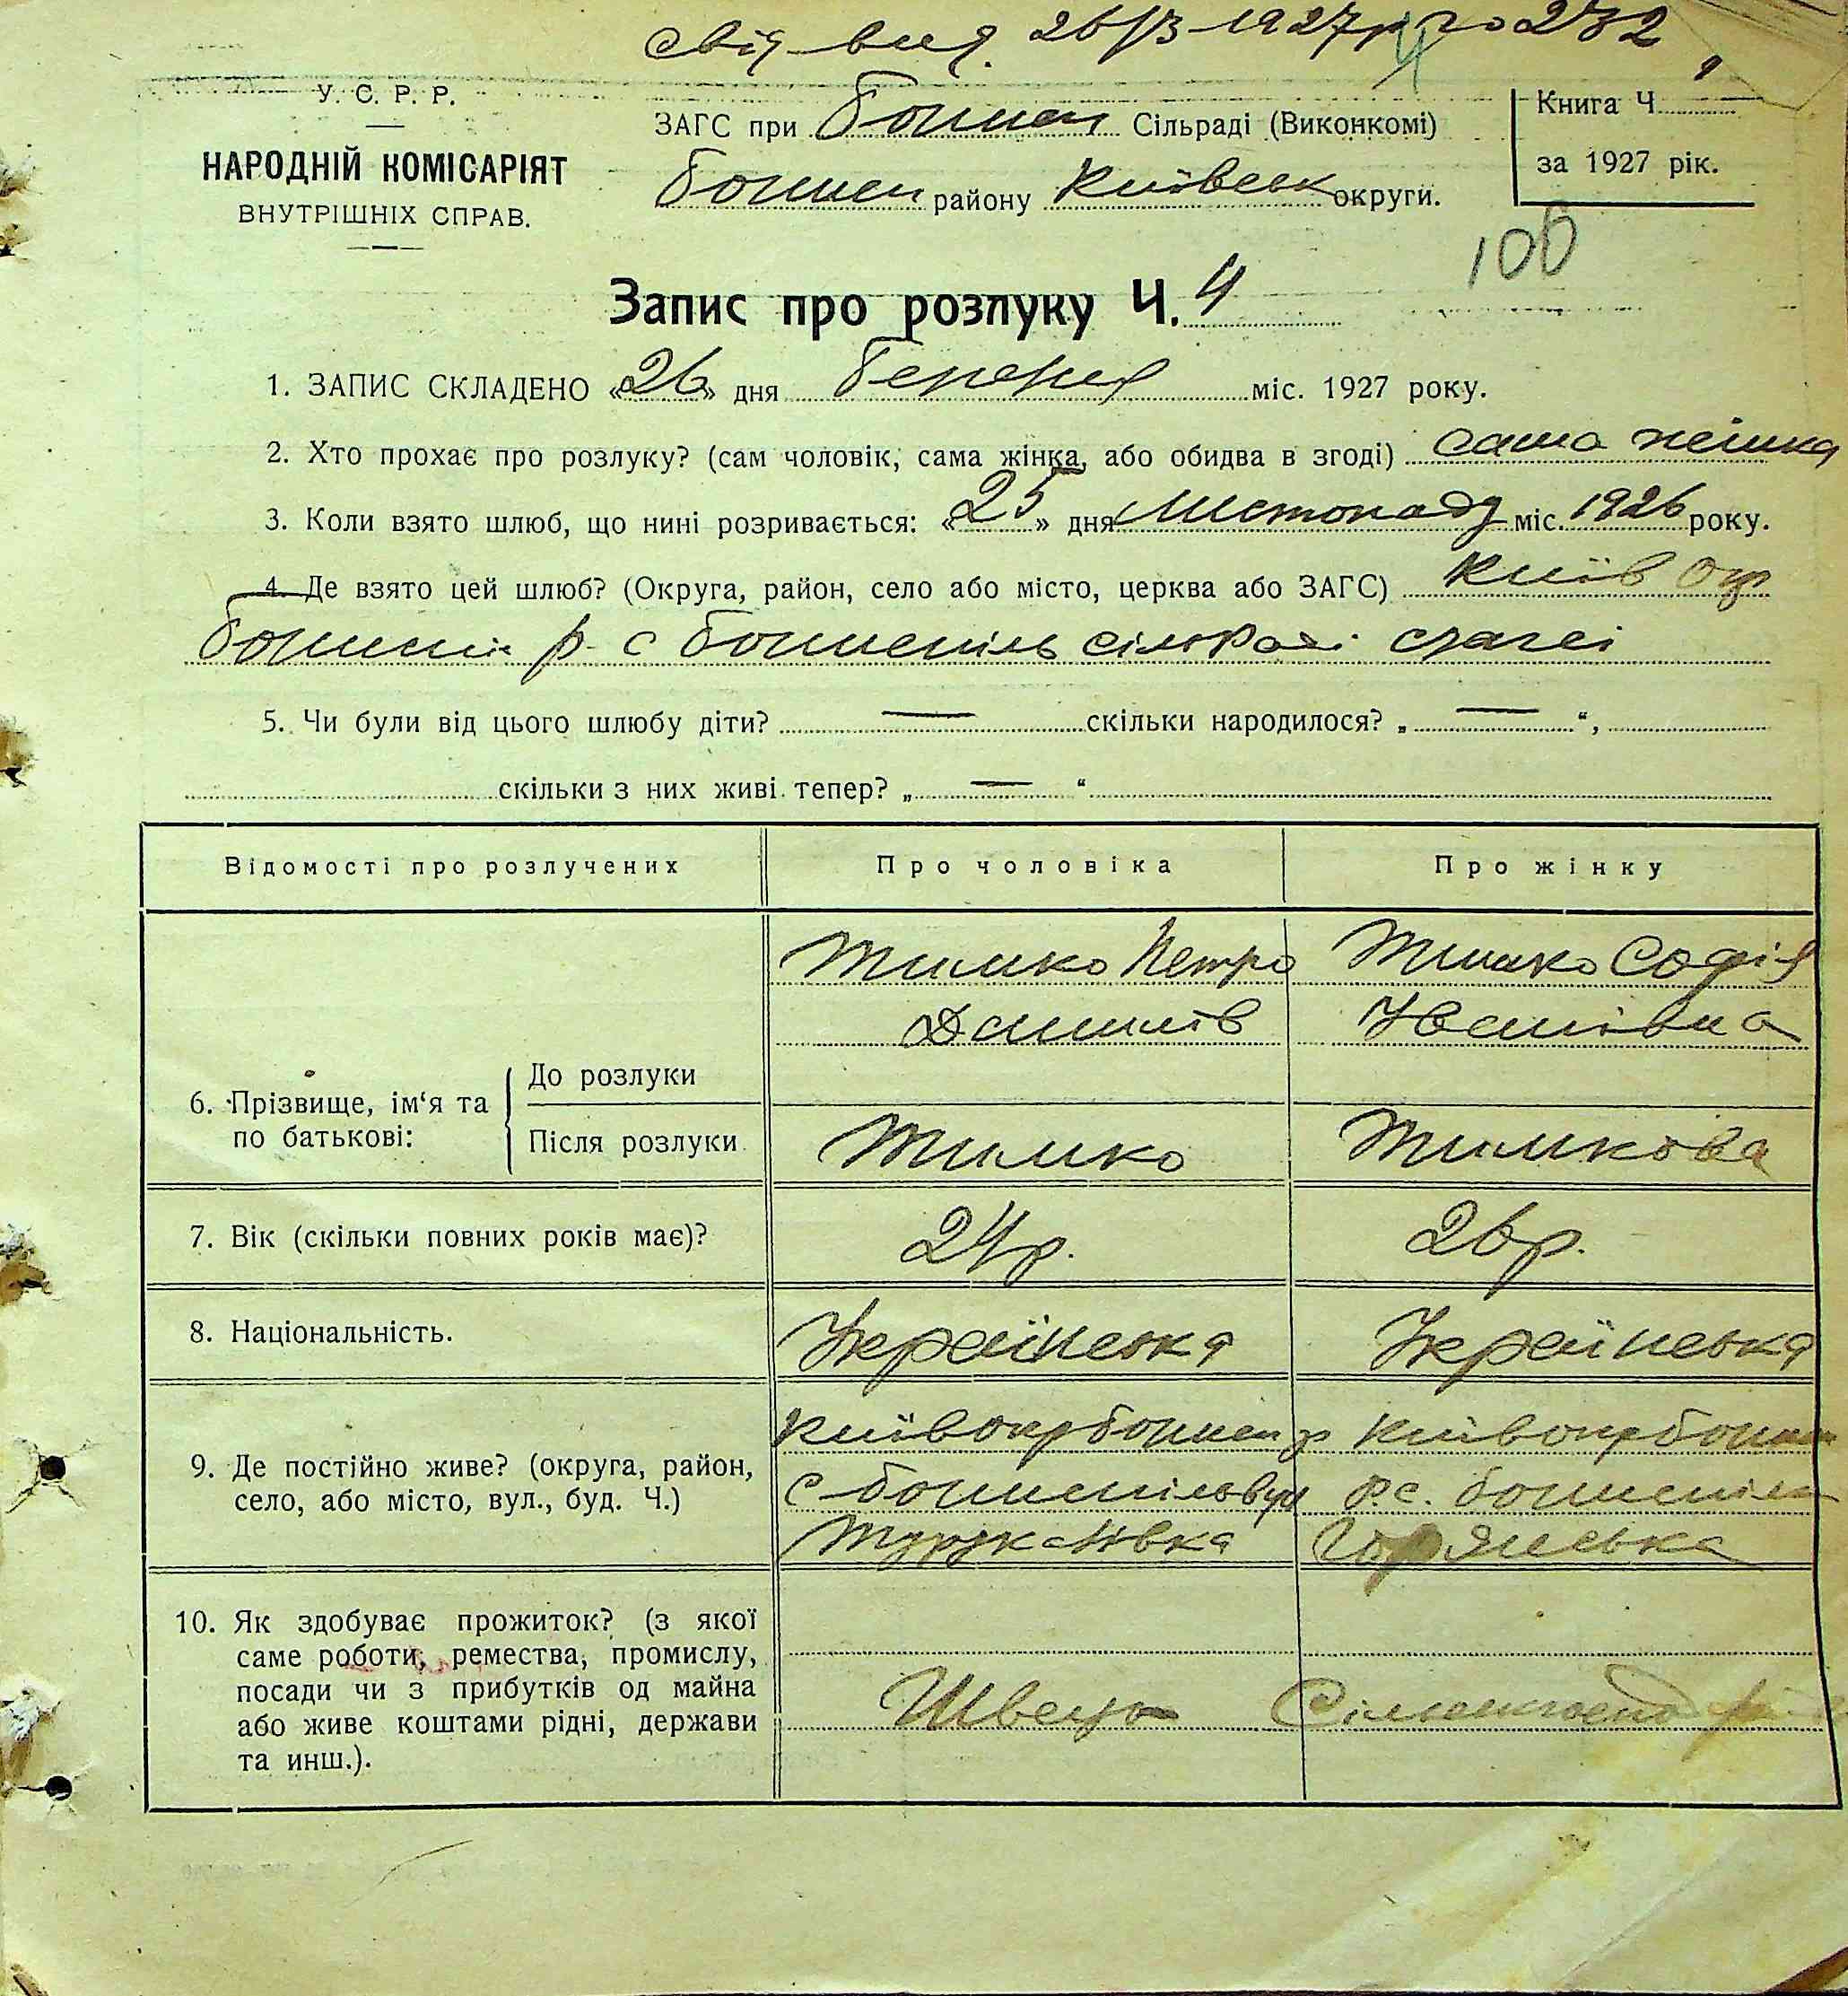 свід вид. 26/3-1927р го 232
У. С. Р. Р.
НАРОДНІЙ КОМІСАРІЯТ
ВНУТРІШНІХ СПРАВ.
ЗАГС при Бориспі Сільраді (Виконкомі)
Бориспі району Київськ округи.
Книга Ч.
за 1927 рік.
100
Запис про розлуку Ч. 4
1. ЗАПИС СКЛАДЕНО «26» дня Березня міс. 1927 року.
2. Хто прохає про розлуку? (сам чоловік, сама жінка, або обидва в згоді) сама жінка
3. Коли взято шлюб, що нині розривається: «25» дня Листопаду міс. 1926 року.
4. Де взято цей шлюб? (Округа, район, село або місто, церква або ЗАГС) Київ окр
Бориспіл р. с Бориспіль сільраді
5. Чи були від цього шлюбу діти? — скільки народилося? „ — “,
скільки з них живі тепер? „ — “
Відомості про розлучених Про чоловіка Про жінку
Тимко Петро Тимко Софія
Данилів Іванівна
6. Прізвище, ім‘я та по батькові:
До розлуки
Після розлуки Тимко Тимкова
7. Вік (скільки повних років має)? 24р. 26р.
8. Національність. Українська Українська
9. Де постійно живе? (округа, район, село, або місто, вул., буд. Ч.)
Київ окр Борисп р Київ окр Борисп
с Бориспіль вул р.с. Бориспіль
10. Як здобуває прожиток? (з якої
саме роботи, ремества, промислу,
посади чи з прибутків од майна
або живе коштами рідні, держави
та инш.).
Швець